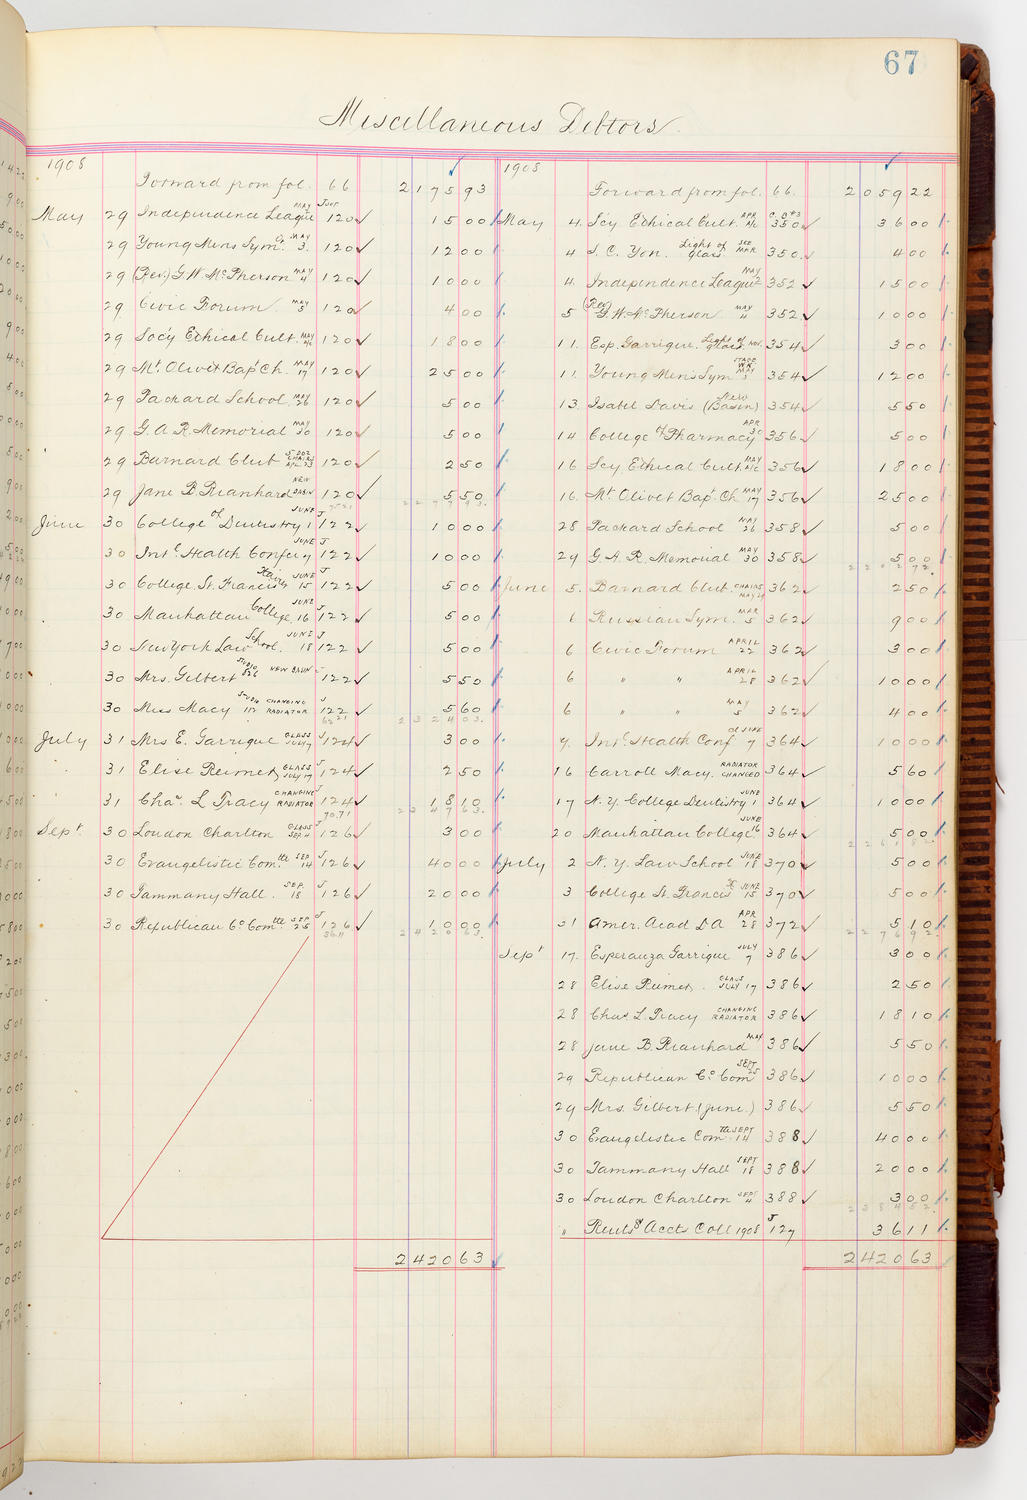 67
Miscellaneous Debtors
1908
Forward from fol. 66 2175 93
May 29 Independence League MAY Jour 120 15 00
29 Young Mens Sym. MAY 3 120 12 00
29 (Rev.) G. W. McPherson MAY 4 120 10 00
29 Civic Forum MAY 5 120 4 00
29 Soc'y Ethical Cult. MAY A/c 120 18 00
29 Mt. Olivet Bapt Ch. MAY 17 120 25 00
29 Packard School. MAY 26 120 5 00
29 G. A. R. Memorial MAY 30 120 5 00
29 Barnard Club 5 DOZ CHAIRS 120 2 50
29 Jane B. Reanhard NEW BASIN 120 5 50
2279 93
June 30 College of Dentistry JUNE 1 J 122 10 00
30 Intl. Health Confer JUNE 7 J 122 10 00
30 College St. Francis Xavier JUNE 15 J 122 5 00
30 Manhattan College JUNE 16 J 122 5 00
30 New York Law School. JUNE 18 J 122 5 00
30 Mrs. Gilbert STUDIO 826 NEW BASIN J 122 5 50
30 Miss Macy STUDIO 112 CHANGING RADIATOR J 122 5 60
2324 03
July 31 Mrs E. Garrigue GLASS JULY 7 J 124 3 00
31 Elise Reimer GLASS JULY 17 J 124 2 50
31 Chas. L Tracy CHANGING RADIATOR 124 18 10
2347 63
Sept. 30 London Charlton GLASS SEP. 4 J 126 3 00
30 Evangelistic Comttee SEP. 14 J 126 40 00
30 Tammany Hall. SEP. 18 J 126 20 00
30 Republican Co Comttee SEP. 25 J 126 10 00
2420 63
2420 63
1908
Forward from fol. 66. 2059 22
May 4. S'cy Ethical Cult. APR. A/c 350 36 00
4 S. C. Yon. Light of Glass SEE MAR. 350 4 00
4 Independence League MAY 2 352 15 00
5 (Rev) G. W. McPherson MAY 4 352 10 00
11. Esp. Garrigue. Light of glass NOV. 354 3 00
11. Young Men's Sym MAY 3 354 12 00
13. Isabel Davis (New Basin) 354 5 50
14 College of Pharmacy APR 30 356 5 00
16 S'cy Ethical Cult. MAY A/c 356 18 00
16. Mt. Olivet Bapt. Ch MAY 17 356 25 00
28 Packard School MAY 26 358 5 00
29 G. A. R. Memorial MAY 30 358 5 00
2202 72
June 5. Barnard Club. CHAIRS MAY 29 362 2 50
6 Russian Sym. MAR 5 362 9 00
6 Civic Forum APRIL 22 362 3 00
6 " " APRIL 28 362 10 00
6 " " MAY 5 362 4 00
9. Intl. Health Conf JUNE 7 364 10 00
16 Carroll Macy. RADIATOR CHANGED 364 5 60
17 N. Y. College Dentistry JUNE 1 364 10 00
20 Manhattan College JUNE 16 364 5 00
2261 82
July 2 N. Y. Law School JUNE 18 370 5 00
3 College St. Francis X JUNE 15 370 5 00
31 Amer. Acad D A APR 28 372 5 10
2276 92
Sept 17. Esperanza Garrigue JULY 7 386 3 00
28 Elise Reimer. GLASS JULY 17 386 2 50
28 Chas L. Tracy CHANGING RADIATOR 386 18 10
28 Jane B. Reanhard MAY 386 5 50
29 Republican Co Com SEPT 25 386 10 00
29 Mrs. Gilbert (June.) 386 5 50
30 Evangelistic Comttee SEPT 14 388 40 00
30 Tammany Hall SEPT 18 388 20 00
30 London Charlton SEPT 4 388 3 00
2384 52
" Rents & Accts Coll 1908 J 127 36 11
2420 63